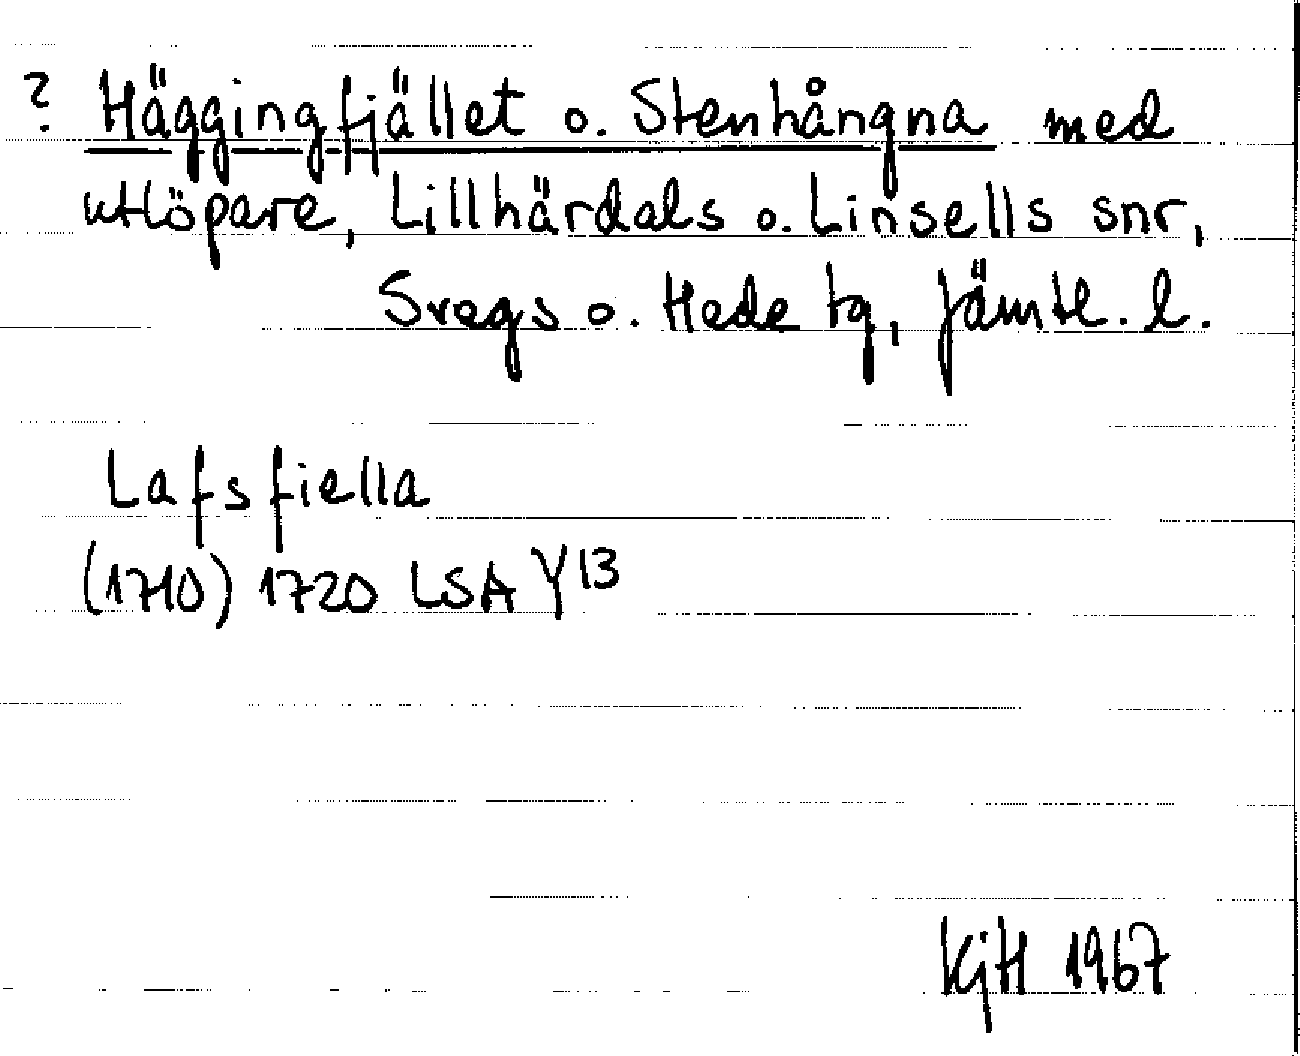 ? Häggingfjället o. Stenhångna med
utlöpare, Lillhärdals o. Linsells snr,
Svegs o. Hede tg, Jämtl. l.
Lafsfiella
(1710) 1720 LSA Y13
KjH 1967